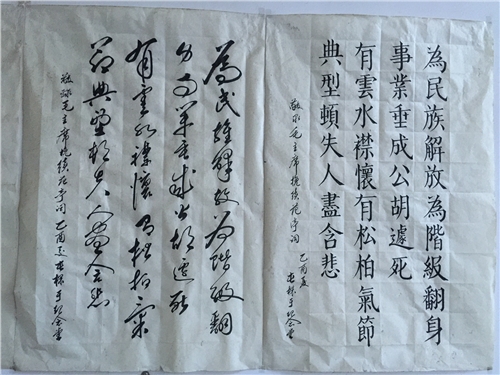 為民族解放為階級翻身
事業垂成公胡遽死
有雲水襟懷有松柏氣節
典型頓失人盡含悲
敬录毛主席挽续范亭词
乙酉夏 于纪念堂
為民族解放為階級翻
身事業垂成公胡遽死
有雲水襟懷有松柏氣
節典型頓失人盡含悲
敬录毛主席挽续范亭词 乙酉夏 于纪念堂